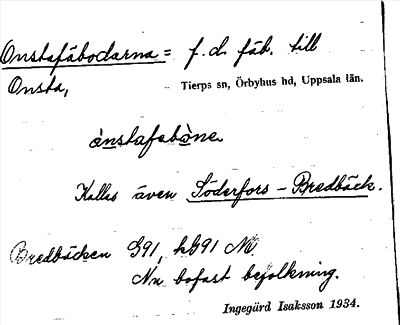 Onstafäbodarna = f.d. fäb. till
Onsta, Tierps sn, Örbyhus hd, Uppsala län.
ånstafabòne
Kallas även Söderfors - Bredbäck.
Bredbäcken G91, hG91 NV
Nu bofast befolkning.
Ingegärd Isaksson 1934.